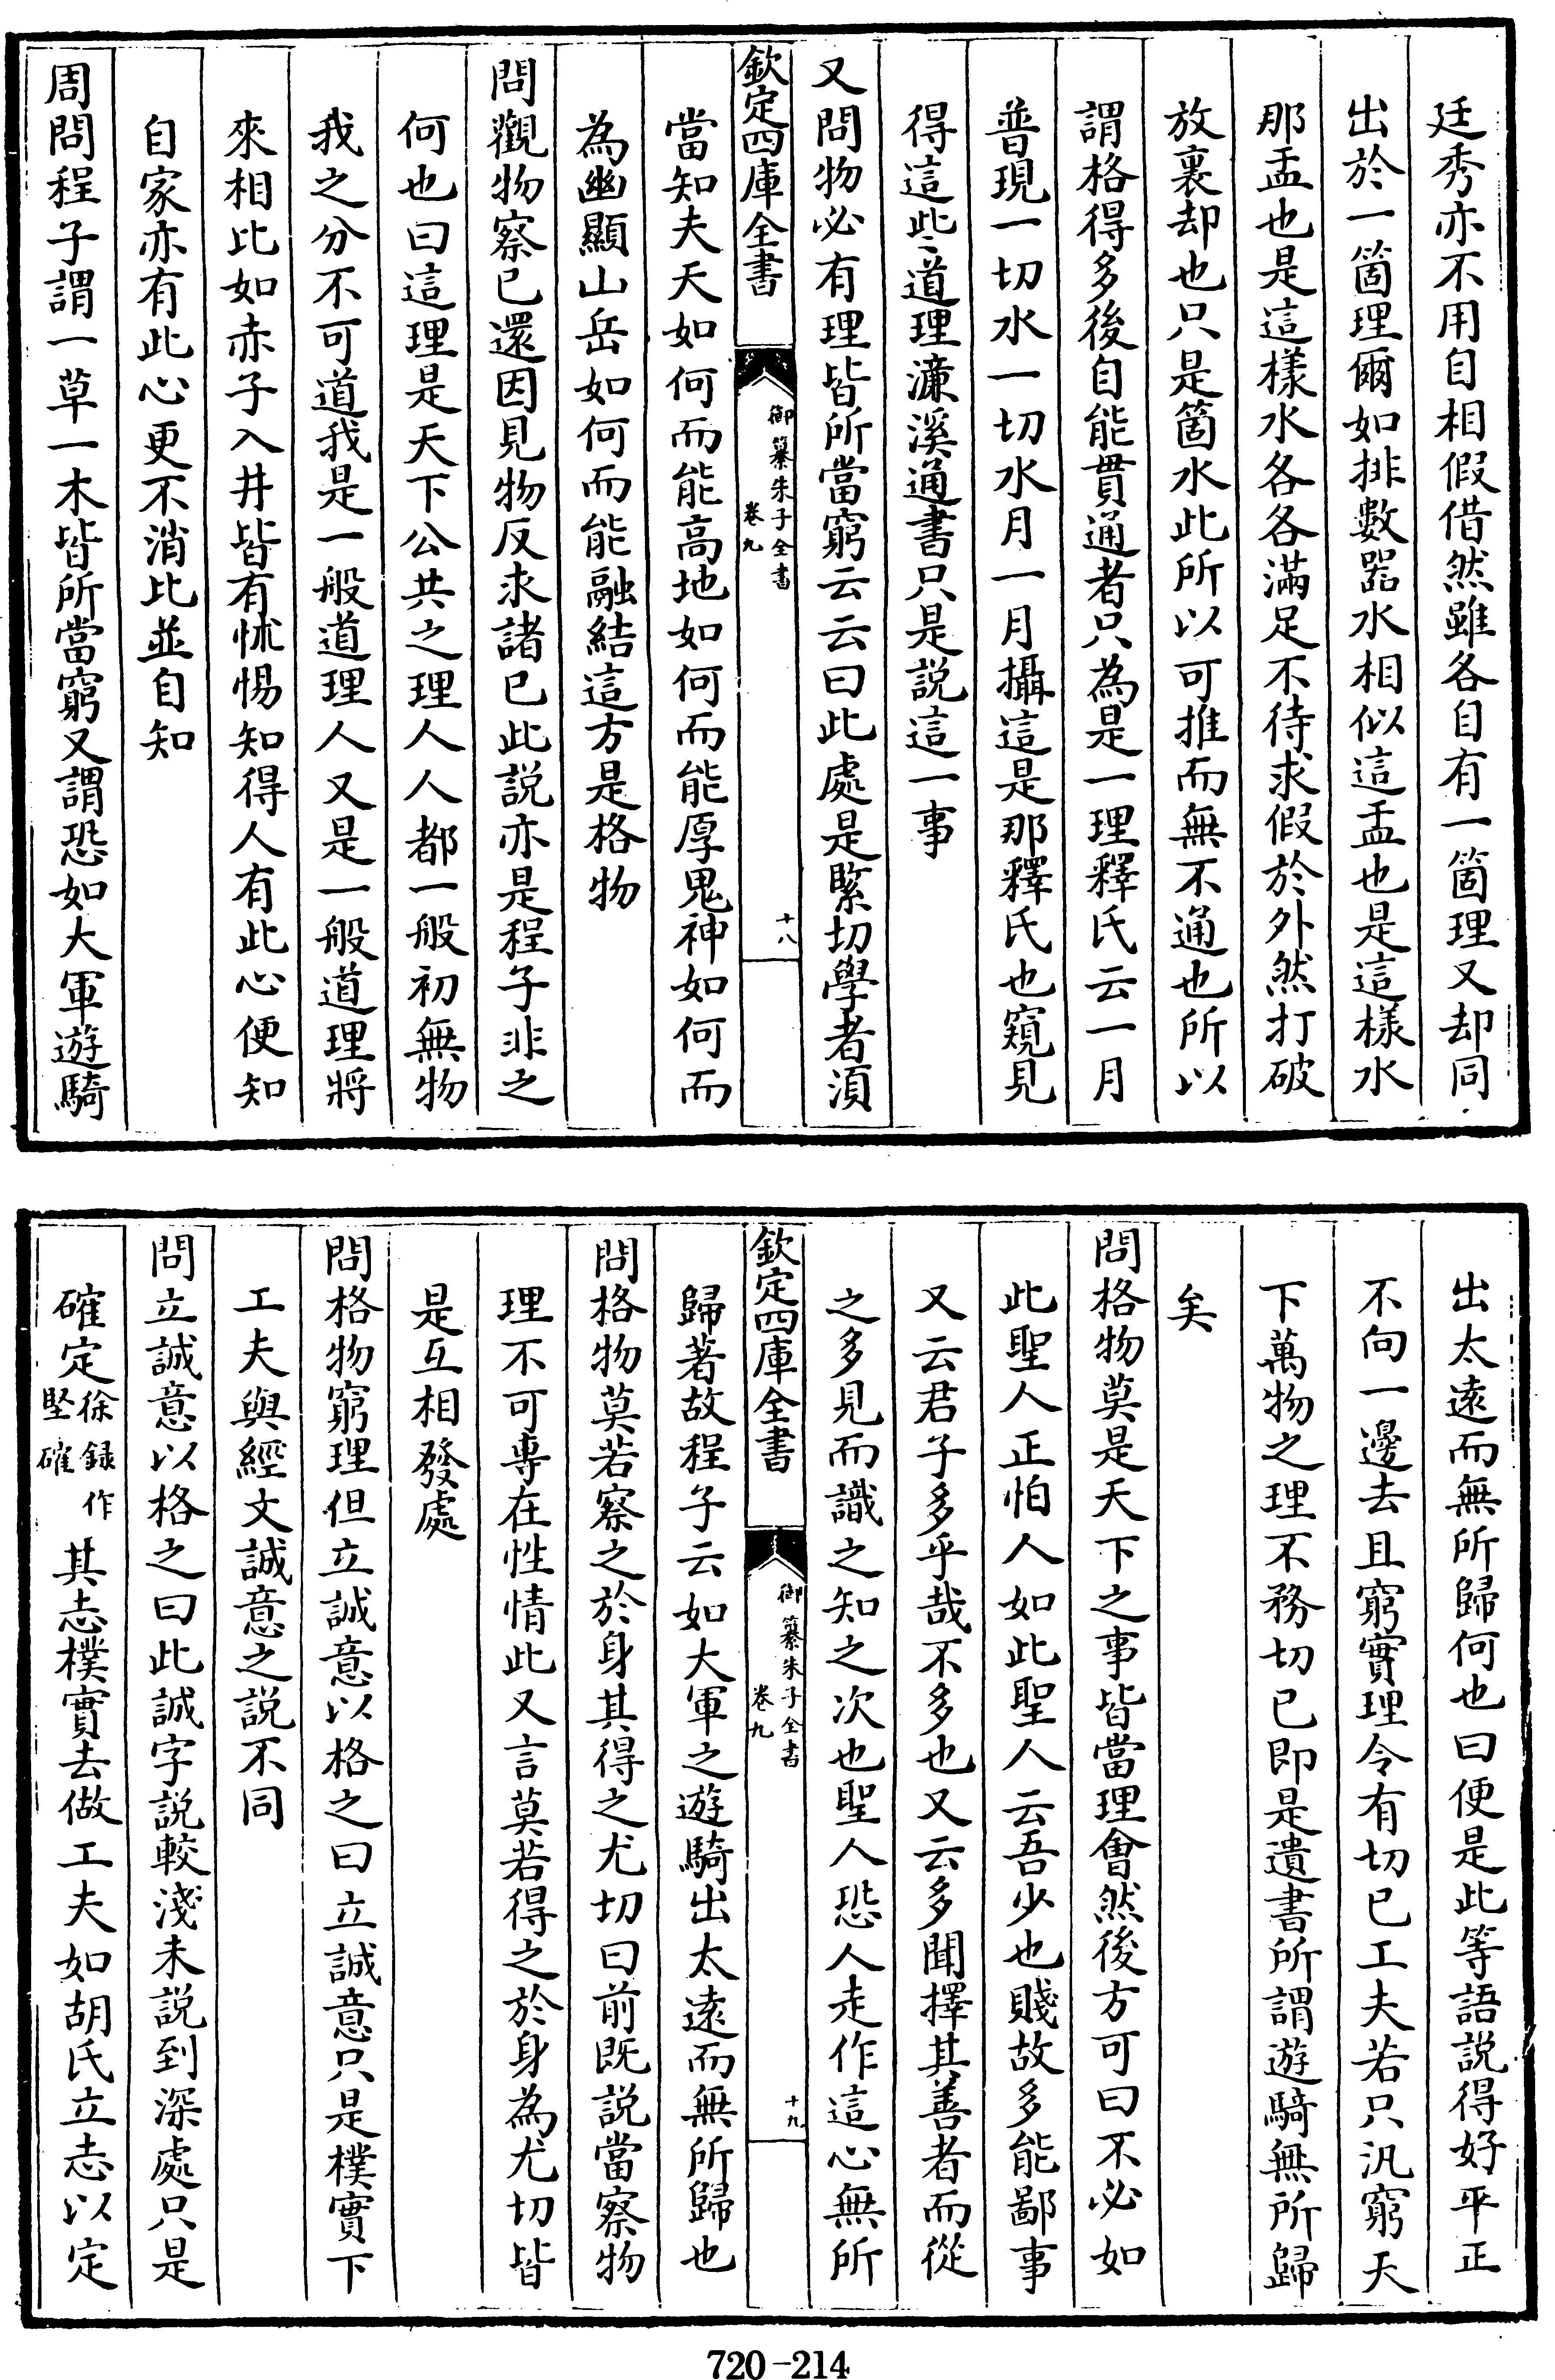 廷秀亦不用自相假借然雖各自有一箇理又却同
出於一箇理爾如排數器水相似這盂也是這樣水
那盂也是這樣水各各滿足不待求假於外然打破
放裏却也只是箇水此所以可推而無不通也所以
謂格得多後自能貫通者只為是一理釋氏云一月
普現一切水一切水月一月攝這是那釋氏也窺見
得這些道理濂溪通書只是説這一事
又問物必有理皆所當窮云云曰此處是緊切學者須
欽定四庫全書
御纂朱子全書
卷九
十八
當知夫天如何而能高地如何而能厚鬼神如何而
為幽顯山岳如何而能融結這方是格物
問觀物察已還因見物反求諸已此説亦是程子非之
何也曰這理是天下公共之理人人都一般初無物
我之分不可道我是一般道理人又是一般道理將
來相比如赤子入井皆有怵惕知得人有此心便知
自家亦有此心更不消比並自知
周問程子謂一草一木皆所當窮又謂恐如大軍遊騎
出太遠而無所歸何也曰便是此等語説得好平正
不向一邊去且窮實理令有切已工夫若只汎窮天
下萬物之理不務切已即是遺書所謂遊騎無所歸
矣
問格物莫是天下之事皆當理會然後方可曰不必如
此聖人正怕人如此聖人云吾少也賤故多能鄙事
又云君子多乎哉不多也又云多聞擇其善者而從
之多見而識之知之次也聖人恐人走作這心無所
欽定四庫全書
御纂朱子全書
卷九
十九
歸著故程子云如大軍之遊騎出太遠而無所歸也
問格物莫若察之於身其得之尤切曰前既説當察物
理不可專在性情此又言莫若得之於身為尤切皆
是互相發處
問格物窮理但立誠意以格之曰立誠意只是樸實下
工夫與經文誠意之説不同
問立誠意以格之曰此誠字説較淺未説到深處只是
確定徐録作堅確其志樸實去做工夫如胡氏立志以定
720-214